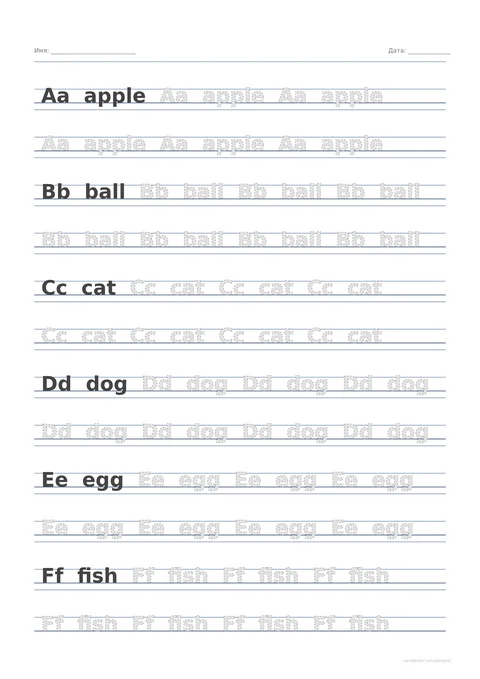 Имя: ____________________ Дата: __________
Aa apple Aa apple Aa apple
Aa apple Aa apple Aa apple
Bb ball Bb ball Bb ball Bb ball
Bb ball Bb ball Bb ball Bb ball
Cc cat Cc cat Cc cat Cc cat
Cc cat Cc cat Cc cat Cc cat
Dd dog Dd dog Dd dog Dd dog
Dd dog Dd dog Dd dog Dd dog
Ee egg Ee egg Ee egg Ee egg
Ee egg Ee egg Ee egg Ee egg
Ff fish Ff fish Ff fish Ff fish
Ff fish Ff fish Ff fish Ff fish